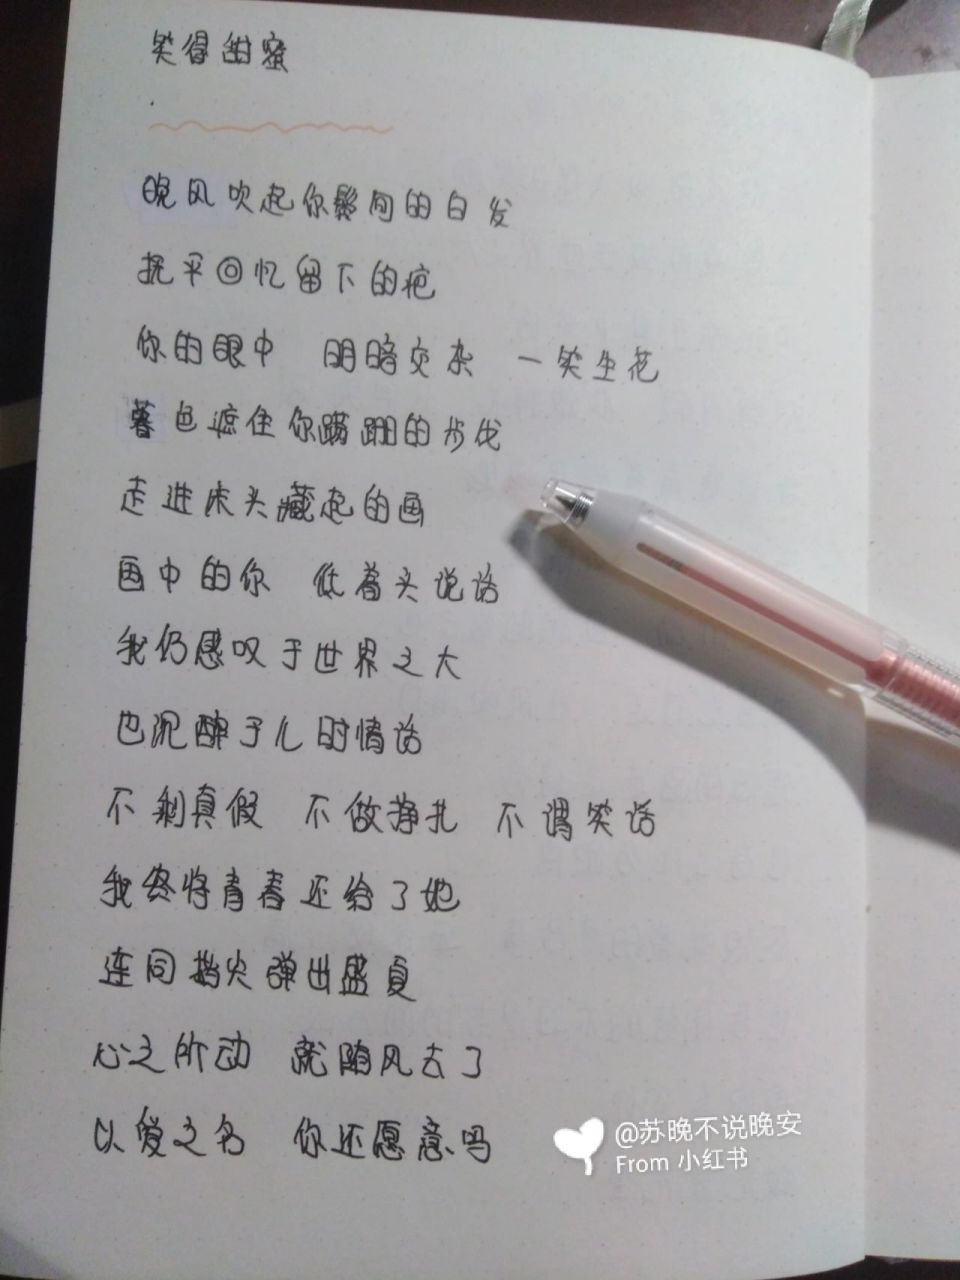 笑得甜蜜
晚风吹起你鬓间的白发
抚平回忆留下的疤
你的眼中 明暗交杂 一笑生花
暮色遮住你蹒跚的步伐
走进床头藏起的画
画中的你 低着头说话
我仍感叹于世界之大
也沉醉于儿时情话
不剩真假 不做挣扎 不谓笑话
我终将青春还给了她
连同指尖弹出盛夏
心之所动 就随风去了
以爱之名 你还愿意吗
@苏晚不说晚安
From 小红书